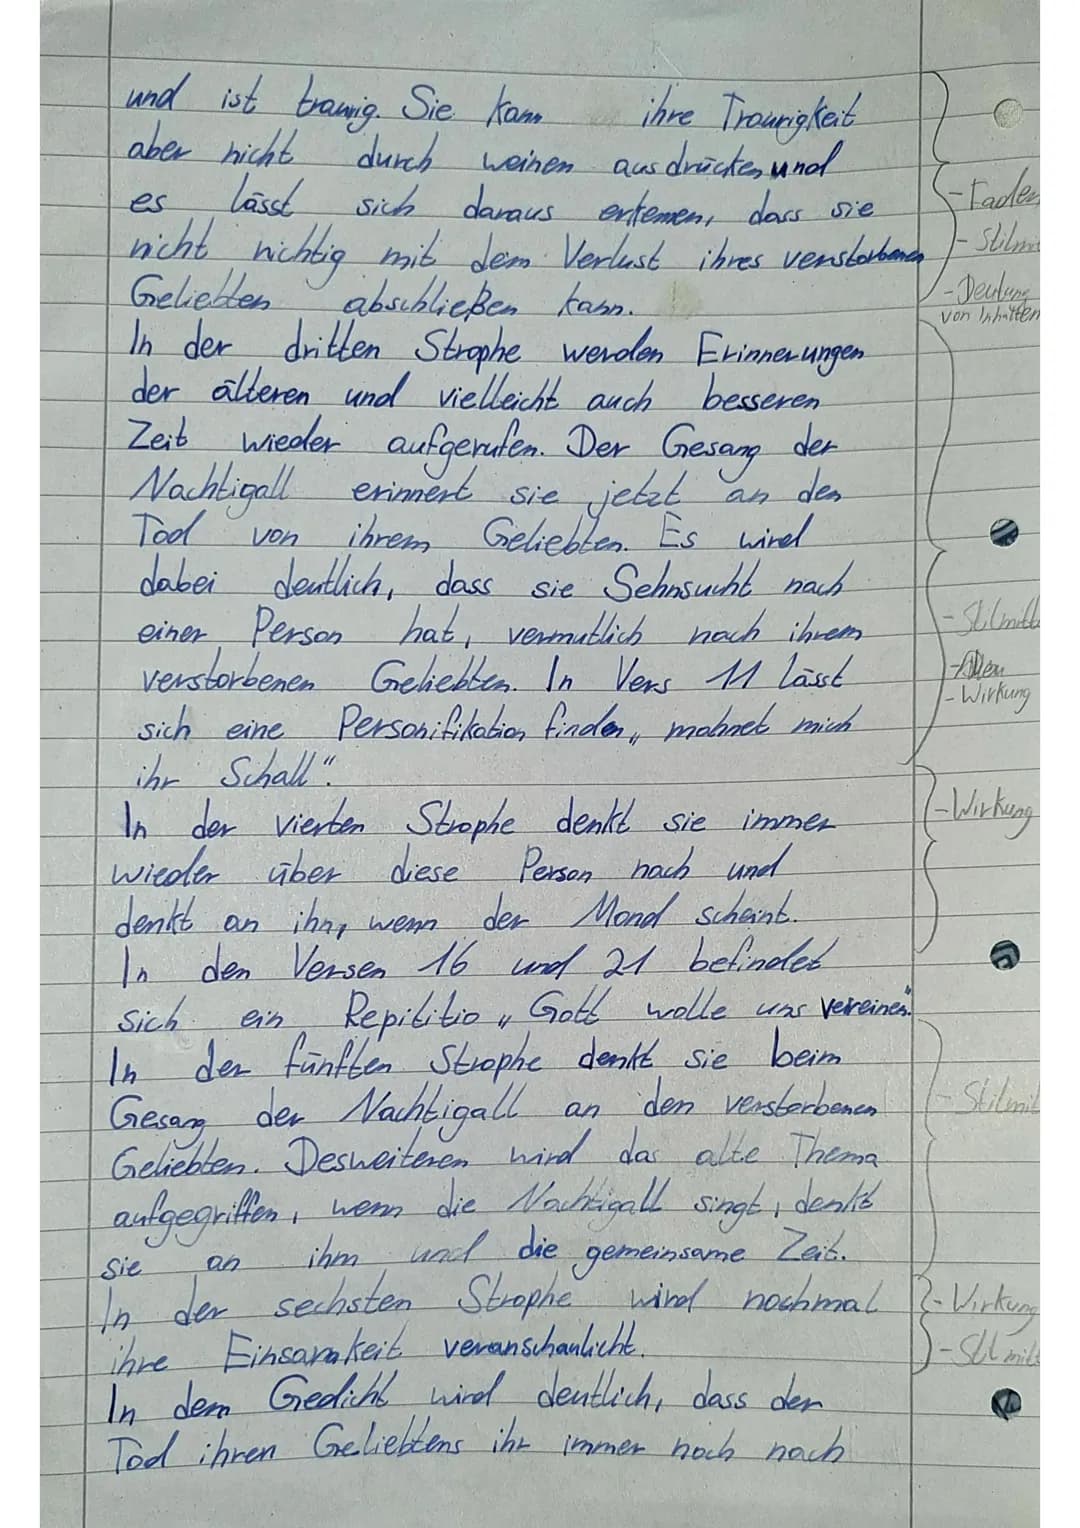 und ist traurig. Sie kann ihre Traurigkeit
aber nicht durch weinen ausdrücken und
es lässt sich daraus erkennen, dass sie
nicht richtig mit dem Verlust ihres verstorbenen
Geliebten abschließen kann.
In der dritten Strophe werden Erinnerungen
der älteren und vielleicht auch besseren
Zeit wieder aufgerufen. Der Gesang der
Nachtigall erinnert sie jetzt an den
Tod von ihrem Geliebten. Es wird
dabei deutlich, dass sie Sehnsucht nach
einer Person hat, vermutlich nach ihrem
verstorbenen Geliebten. In Vers 11 lässt
sich eine Personifikation finden „mahnet mich
ihr Schall".
In der vierten Strophe denkt sie immer
wieder über diese Person nach und
denkt an ihn, wenn der Mond scheint.
In den Versen 16 und 21 befindet
sich ein Repititio „Gott wolle uns vereinen".
In der fünften Strophe denkt sie beim
Gesang der Nachtigall an den verstorbenen
Geliebten. Desweiteren wird das alte Thema
aufgegriffen, wenn die Nachtigall singt, denkt
sie an ihm und die gemeinsame Zeit.
In der sechsten Strophe wird nochmal
ihre Einsamkeit veranschaulicht.
In dem Gedicht wird deutlich, dass der
Tod ihren Geliebtens ihr immer noch nach
- Faden
- Stilmit
- Deutung
von Inhalten
- Stilmitte
- Wirkung
- Wirkung
- Stilmit
- Wirkung
- Stilmitt